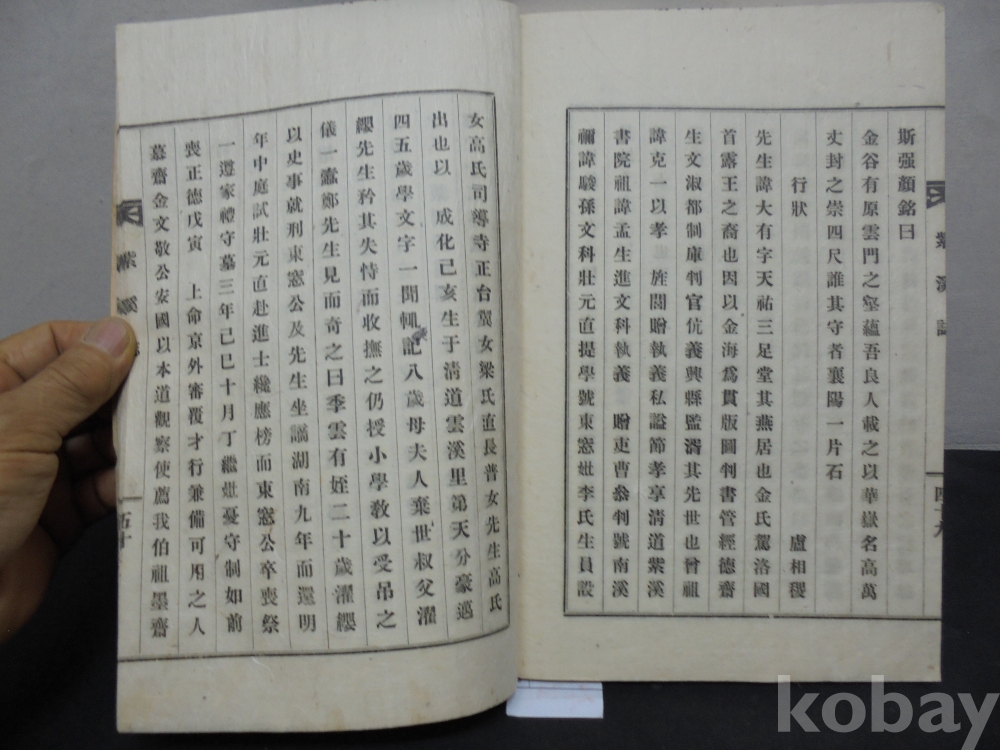 斯强顔銘曰
金谷有原雲門之壑蘊吾良人載之以華嶽名高萬
丈封之崇四尺誰其守者襄陽一片石
行狀 盧相稷
先生諱大有字天祐三足堂其燕居也金氏駕洛國
首露王之裔也因以金海爲貫版圖判書管經德齋
生文淑都制庫判官伉義興縣監湑其先世也曾祖
諱克一以孝 旌閭贈執義私謚節孝享淸道紫溪
書院祖諱孟生進文科執義 贈吏曹叅判號南溪
禰諱駿孫文科壯元直提學號東窓妣李氏生員設
紫溪誌
四十九
女高氏司導寺正台翼女梁氏直長普女先生高氏
出也以 成化己亥生于淸道雲溪里第天分豪邁
四五歲學文字一聞輒記八歲母夫人棄世叔父濯
纓先生矜其失恃而收撫之仍授小學敎以受吊之
儀一蠹鄭先生見而奇之曰季雲有姪二十歲濯纓
以史事就刑東窓公及先生坐謫湖南九年而還明
年中庭試壯元直赴進士纔應榜而東窓公卒喪祭
一遵家禮守墓三年己巳十月丁繼妣憂守制如前
喪正德戊寅 上命京外審覆才行兼備可用之人
慕齋金文敬公安國以本道觀察使薦我伯祖墨齋
紫溪
五十
kobay